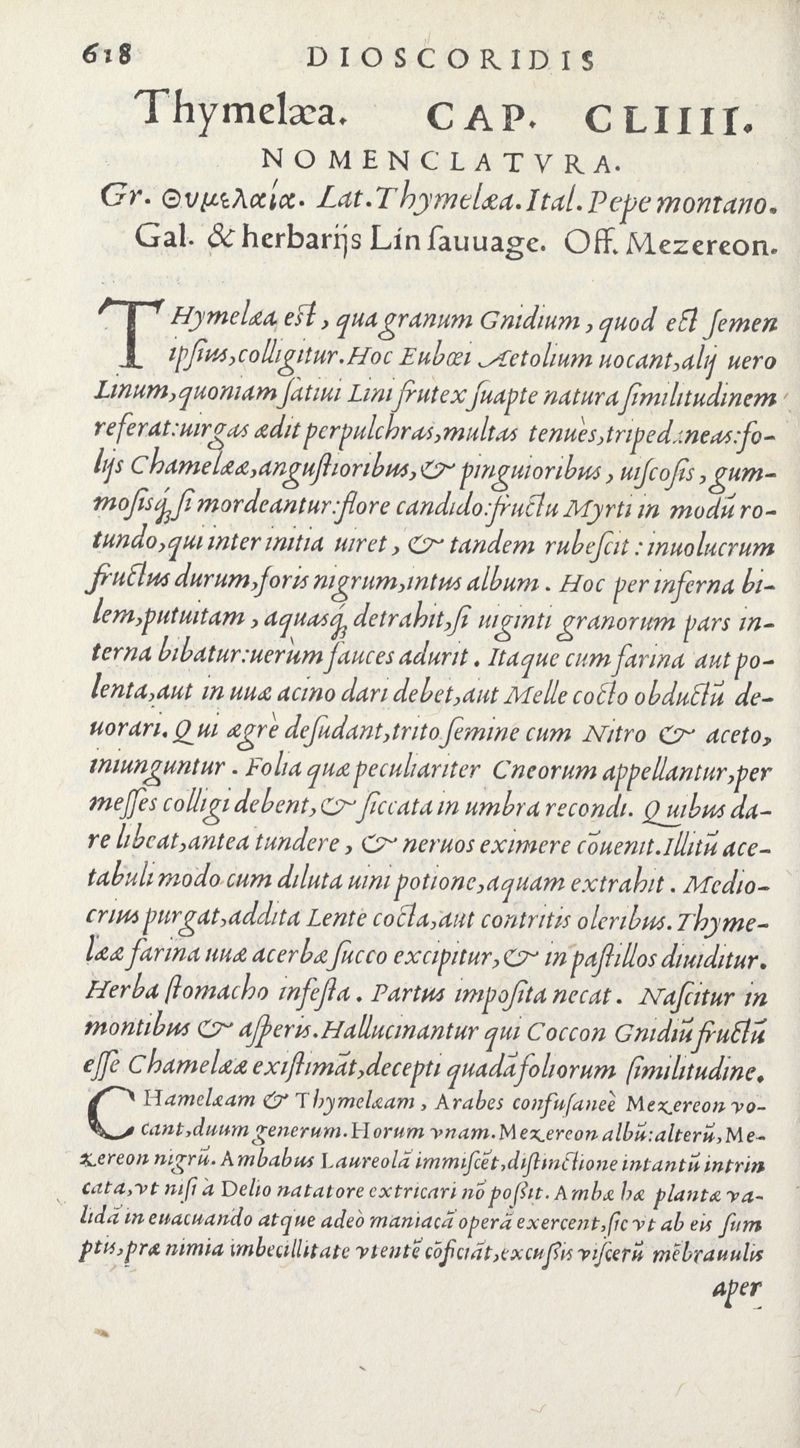 618 DIOSCORIDIS
Thymelæa. CAP. CLIIII.
NOMENCLATVRA.
Gr. Θυμελαία. Lat. Thymelæa. Ital. Pepe montano.
Gal. & herbarijs Lin ſauuage. Off. Mezereon.
THymelæa est, qua granum Gnidium, quod est ſemen
ipſius, colligitur. Hoc Eubœi Aetolium uocant, alij uero
Linum, quoniam ſatiui Lini frutex ſuapte natura ſimilitudinem
referat: uirgas ædit perpulchras, multas tenuès, tripedaneas: fo-
lijs Chamelææ, anguſtioribus, & pinguioribus, uiſcoſis, gum-
moſisq́; ſi mordeantur: flore candido: fructu Myrti in modū ro-
tundo, qui inter initia uiret, & tandem rubeſcit: inuolucrum
fructus durum, foris nigrum, intus album. Hoc per inferna bi-
lem, putuitam, aquasq́; detrahit, ſi uiginti granorum pars in-
terna bibatur: uerùm fauces adurit. Itaque cum farina aut po-
lenta, aut in uuæ acino dari debet, aut Melle cocto obductū de-
uorari. Qui ægrè deſudant, trito ſemine cum Nitro & aceto,
iniunguntur. Folia quæ peculiariter Cneorum appellantur, per
meſſes colligi debent, & ſiccata in umbra recondi. Quibus da-
re libeat, antea tundere, & neruos eximere cōuenit. Illitū ace-
tabuli modo cum diluta uini potione, aquam extrahit. Medio-
crius purgat, addita Lente cocta, aut contritis oleribus. Thyme-
lææ farina uuæ acerbæ ſucco excipitur, & in paſtillos diuiditur.
Herba ſtomacho infeſta. Partus impoſita necat. Naſcitur in
montibus & aſperis. Hallucinantur qui Coccon Gnidiū fructū
eſſe Chamelææ exiſtimāt, decepti quadā foliorum ſimilitudine.
CHamelæam & Thymelæam, Arabes confuſaneè Mezereon vo-
cant, duum generum. Horum vnam. Mezereon albū: alterū, Me-
zereon nigrū. Ambabus Laureolā immiſcēt, diſtinctione in tantū intrin
cata, vt niſi à Delio natatore extricari nō poßit. Ambæ hæ plantæ va-
lidā in euacuando atque adeò maniacā operā exercent, ſic vt ab eis ſum
ptis, præ nimia imbecillitate vtentē cōficiāt, excußis viſcerū mēbrauulis
aper